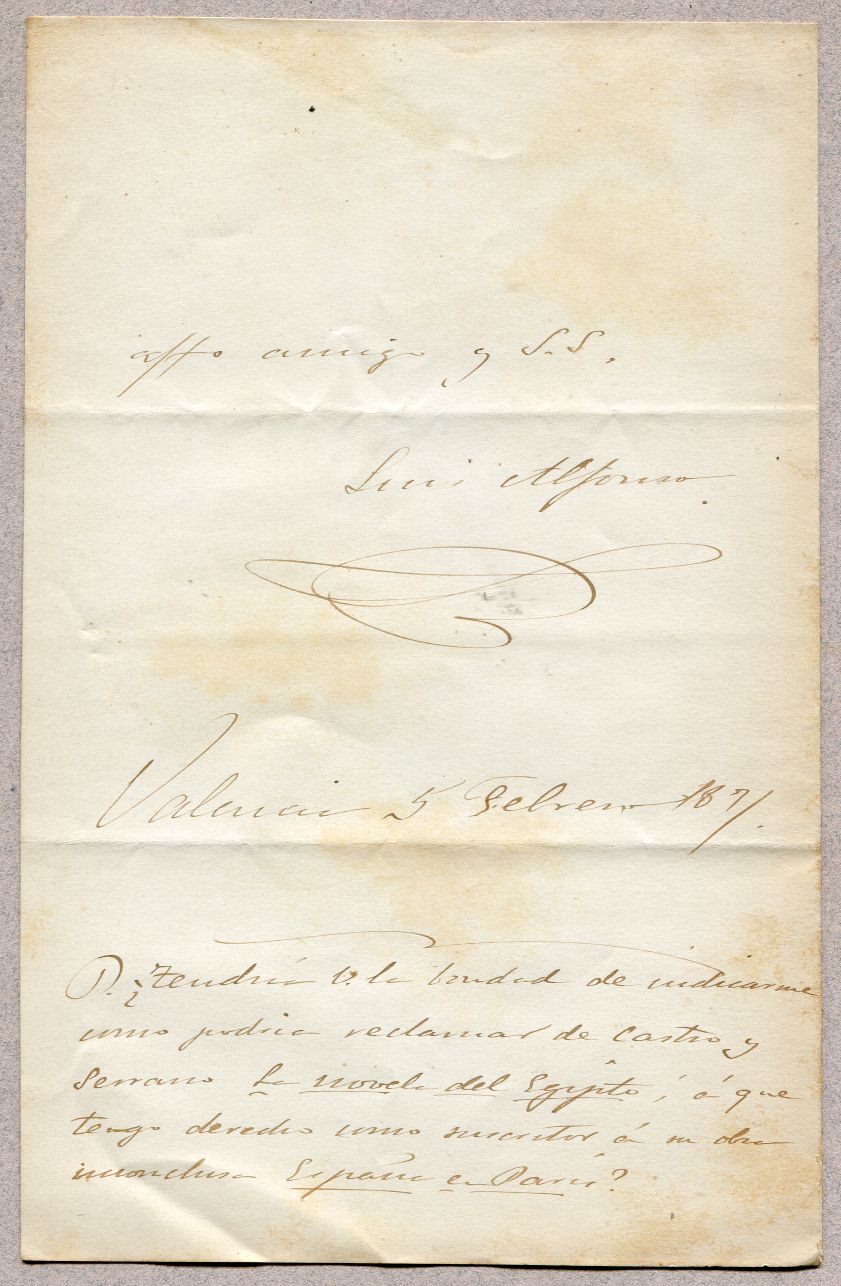 affo amigo y S. S.
Luis Alfonso
Valencia 5 Febrero 1871.
P. ¿Tendria V. la bondad de indicarme
como podria reclamar de Castro y
Serrano La novela del Egipto, á que
tengo derecho como suscritor á su obra
inconclusa España en Paris?